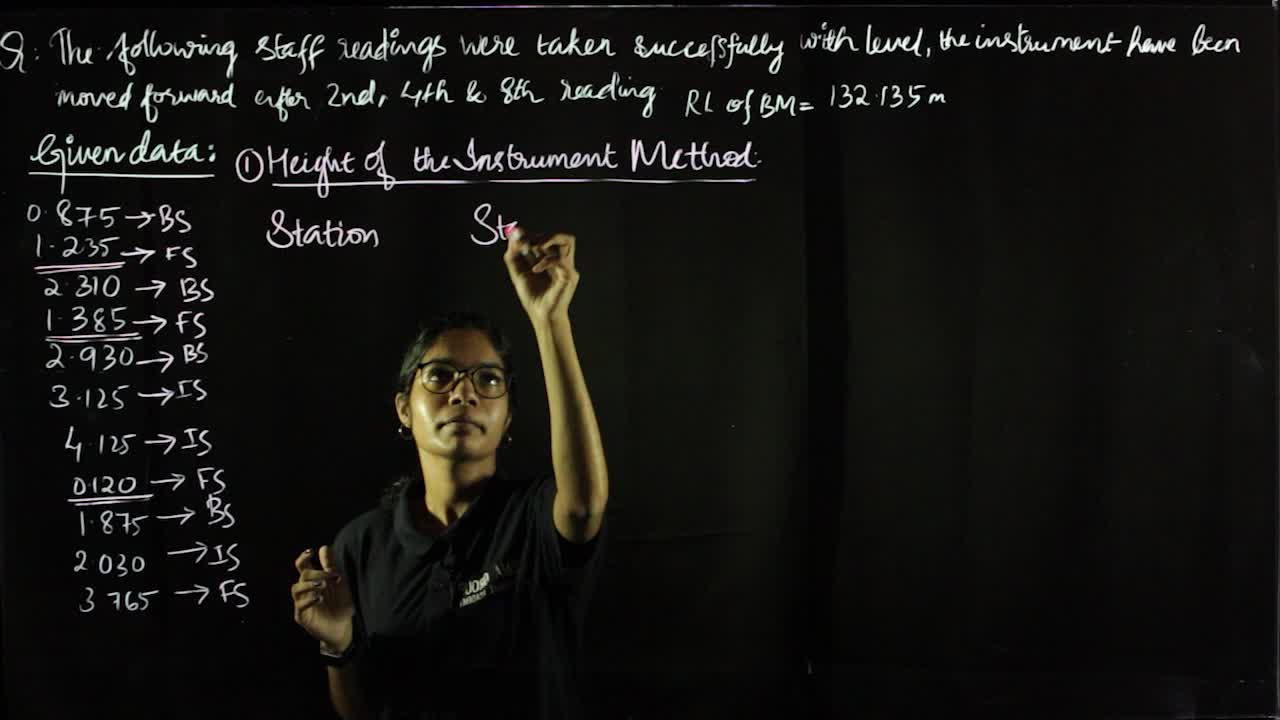 Q: The following staff readings were taken successfully with level, the instrument have been
moved forward after 2nd, 4th & 8th reading RL of BM = 132.135 m
Given data:
① Height of the Instrument Method:
Station Sta
0.875 → BS
1.235 → FS
2.310 → BS
1.385 → FS
2.930 → BS
3.125 → IS
4.125 → IS
0.120 → FS
1.875 → BS
2.030 → IS
3.765 → FS